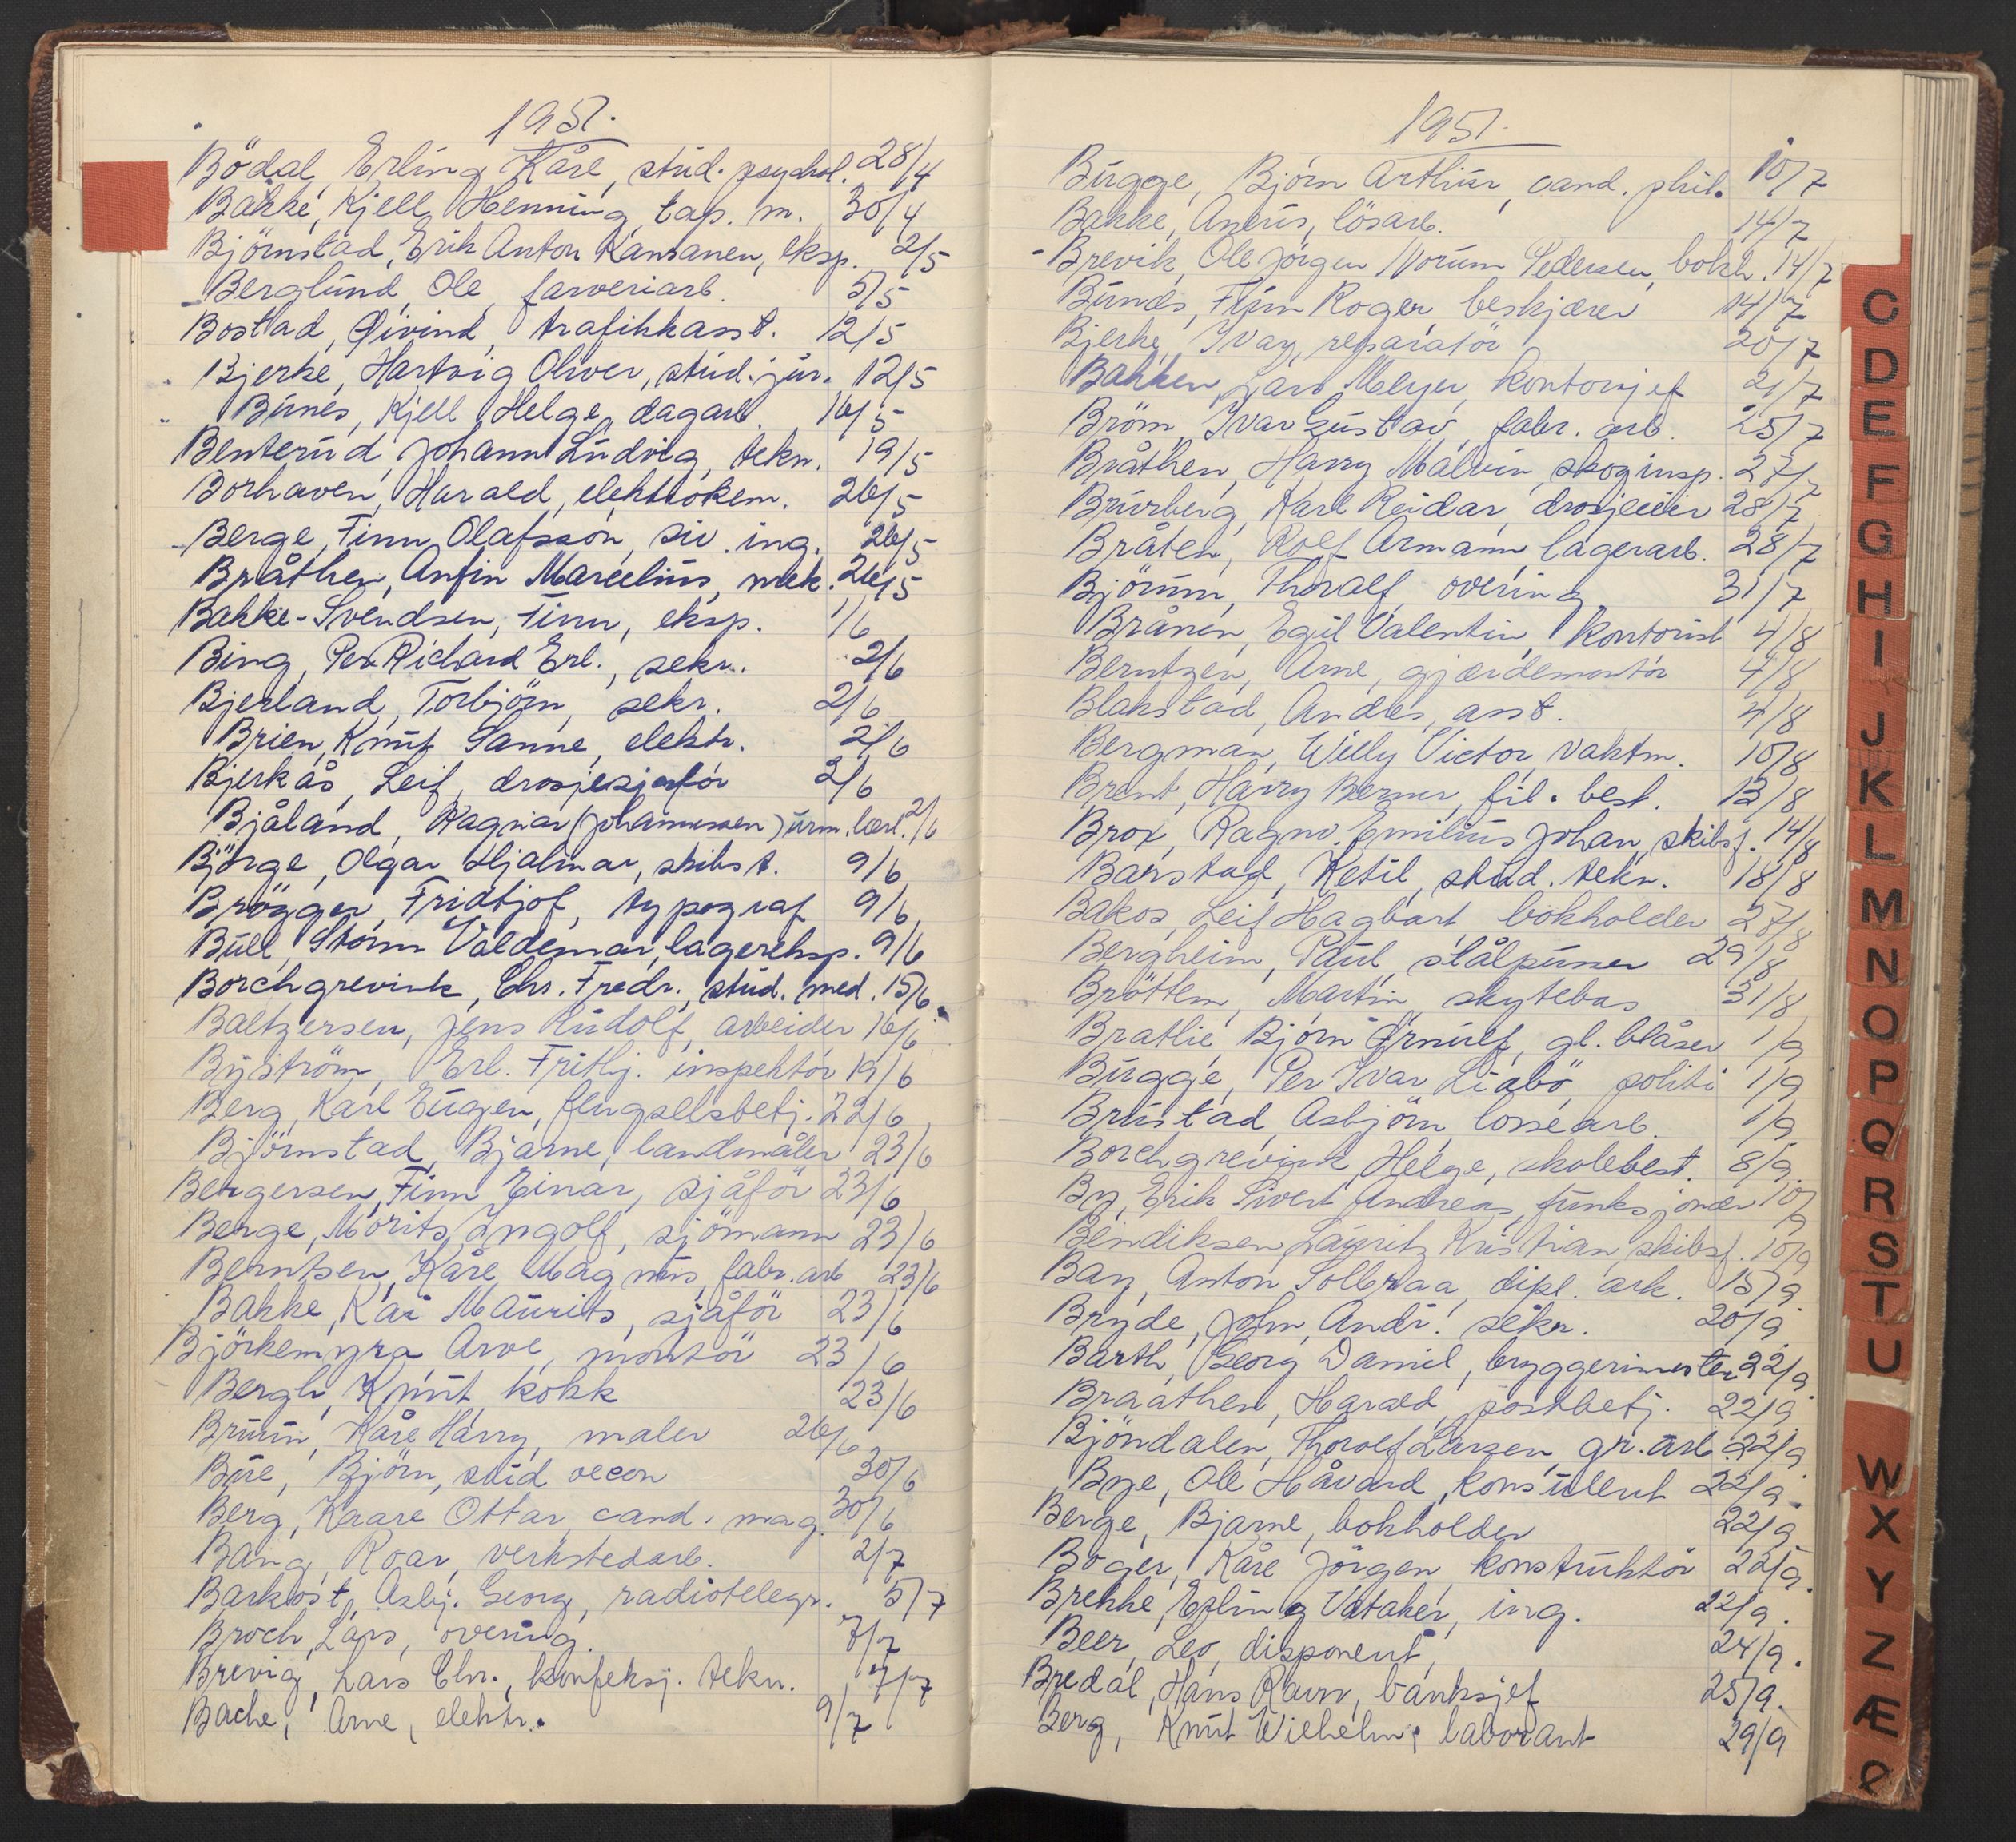 1951.
Bödal, Erling Kåre, stud. psychol. 28/4
Bakke, Kjell Henning, tap. m. 30/4
Björnstad, Erik Anton Kansanen, eksp. 2/5
Berglund, Ole, farveriarb. 5/5
Bostad, Øivind, trafikkasst. 12/5
Bjerke, Hartvig Oliver, stud. jur. 12/5
Bunes, Kjell Helge, dagarb. 16/5
Benterud, Johann Ludvig, tekn. 19/5
Borhaven, Harald, elektrokem. 26/5
Berge, Finn Olafsson, siv. ing. 26/5
Bråthen, Anfin Marcelius, mek. 26/5
Bakke-Svendsen, Finn, eksp. 1/6
Bing, Per Richard Erl., sekr. 2/6
Bjerland, Torbjörn, sekr. 2/6
Brien, Knut Sanne, elektr. 2/6
Bjerkås, Leif, drosjesjåför 2/6
Bjåland, Ragnar (Johannessen) urm. lærl. 2/6
Björge, Olgar Hjalmar, skibst. 9/6
Brögger, Fridtjof, typograf 9/6
Bull, Storm Valdemar, lagereksp. 9/6
Borchgrevink, Chr. Fredr., stud. med. 15/6
Baltzersen, Jens Rudolf, arbeider 16/6
Byström, Erl. Frithj. inspektör 19/6
Berg, Karl Eugen, fengselsbetj. 22/6
Björnstad, Bjarne, landmåler 23/6
Bergersen, Finn Einar, sjåför 23/6
Berge, Morits Ingolf, sjömann 23/6
Berntsen, Kåre Magnus, fabr. arb 23/6
Bakke, Kai Maurits, sjåför 23/6
Björkemyra, Arve, montör 23/6
Bergh, Knut, kokk 23/6
Bruun, Kåre Harry, maler 26/6
Bue, Björn, stud oecon 30/6
Berg, Kaare Ottar, cand. mag. 30/6
Bang, Roar, verkstedarb. 2/7
Barkost, Asbj. Georg, radiotelegr. 5/7
Broch, Lars, overing. 7/7
Brevig, Lars Chr., konfeksj. tekn. 7/7
Bache, Arne, elektr. 9/7
1951.
Bugge, Björn Arthur, cand. phil. 10/7
Bakke, Aneus, lösarb. 14/7
Brevik, Ole Jörgen Norum Pedersen, bokh. 14/7
Bunes, Finn Roger, beskjærer 14/7
Bjerke, Ivar, reparatör 20/7
Bakken, Lars Meyer, kontorsjef 21/7
Bröm, Ivar Gustav, fabr. arb. 25/7
Bråthen, Harry Malvin, skoginsp. 27/7
Brurberg, Karl Reidar, drosjeeier 28/7
Bråten, Rolf Armann, lagerarb. 28/7
Björum, Thoralf, overing 31/7
Brånen, Egil Valentin, kontorist 4/8
Berntzen, Arne, gjærdemontör 4/8
Blakstad, Anders, asst. 4/8
Bergman, Willy Victor, vaktm. 10/8
Brent, Harry Berner, fil. best. 13/8
Brox, Ragnv. Emilius Johan, skibsf. 14/8
Barstad, Ketil, stud. tekn. 18/8
Bakos, Leif Hagbart, bokholder 27/8
Bergheim, Paul, stålpusser 29/8
Bröttem, Martin, skytebas 31/8
Bratlie, Björn Ørnulf, gl. blåser 1/9
Bugge, Per Ivar Liabö, politi 1/9
Brustad, Asbjörn, lossearb. 1/9
Borchgrevink, Helge, skolebest. 8/9
By, Erik Sivert Andreas, funksjonær 10/9
Bendiksen, Lauritz Kristian, skibsf. 10/9
Bay, Anton Solbraa, dipl. ark. 15/9
Bryde, John Andr. sekr. 20/9
Barth, Georg Daniel, bryggerimester 22/9
Braathen, Harald, postbetj. 22/9
Bjöndalen, Thorolf Larsen, gr. arb. 22/9
Bye, Ole Håvard, konsulent 22/9
Berge, Bjarne, bokholder 22/9
Boger, Kåre Jörgen, konstruktör 22/9
Brekke, Erling Vataker, ing. 22/9.
Beer, Leo, disponent, 24/9.
Bredal, Hans Ravn, banksjef 25/9.
Berg, Knut Wilhelm, laborant 29/9
C
D
E
F
G
H
I
J
K
L
M
N
O
P
Q
R
S
T
U
W
X
Y
Z
Æ
Ø